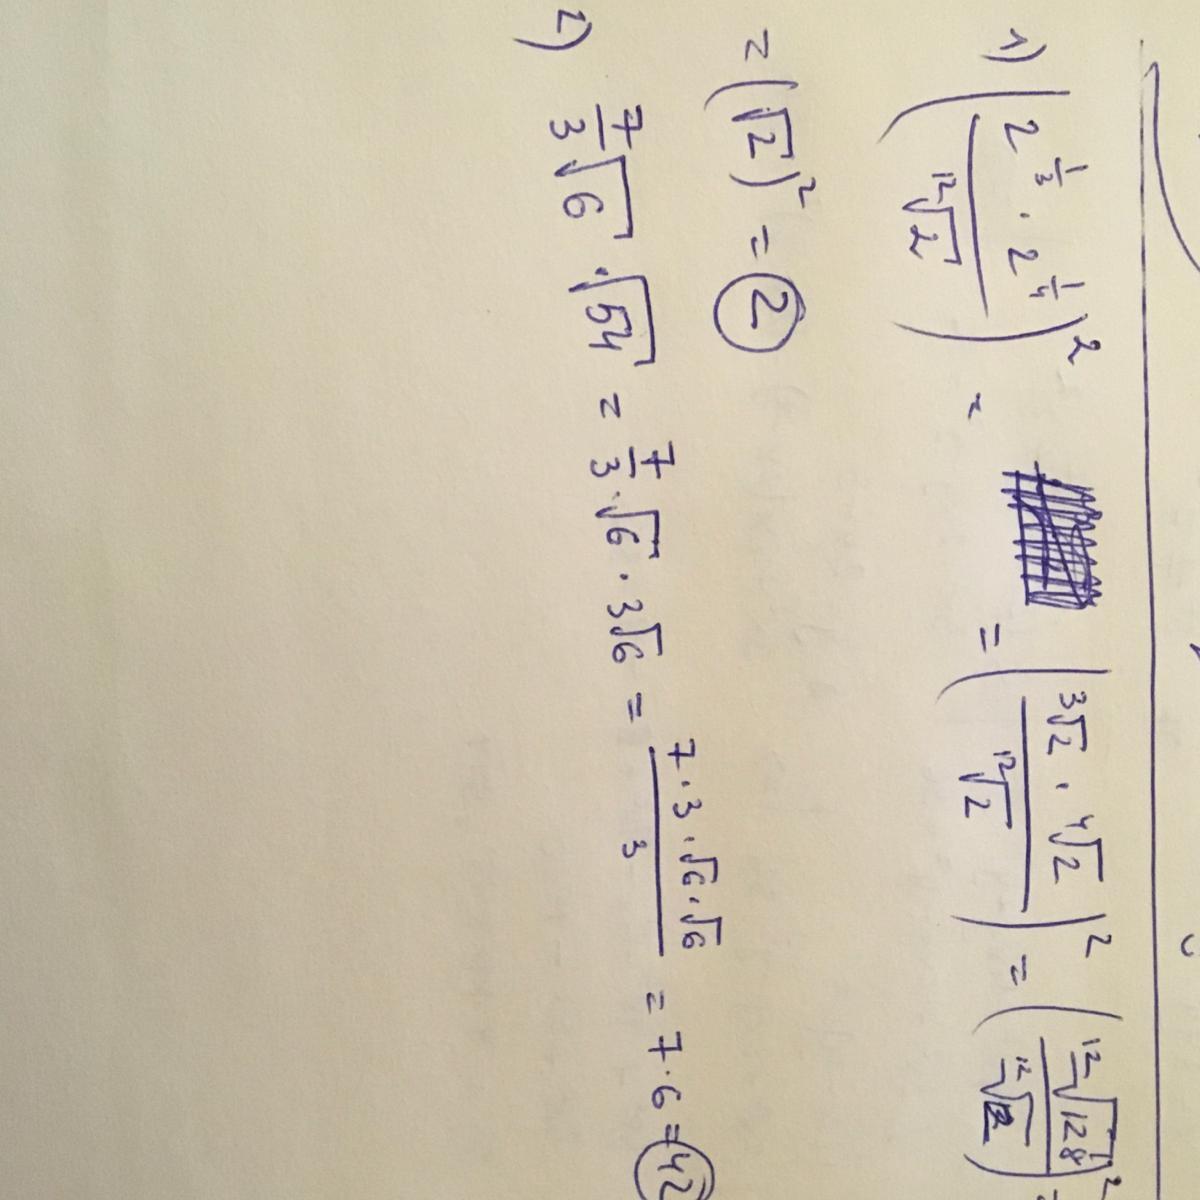 1) (2^(1/3) · 2^(1/4) / ¹²√2)² = = (³√2 · ⁴√2 / ¹²√2)² = (¹²√128 / ¹²√2)² =
= (√2)² = 2
2) 7/3 √6 · √54 = 7/3 · √6 · 3√6 = 7 · 3 · √6 · √6 / 3 = 7 · 6 = 42